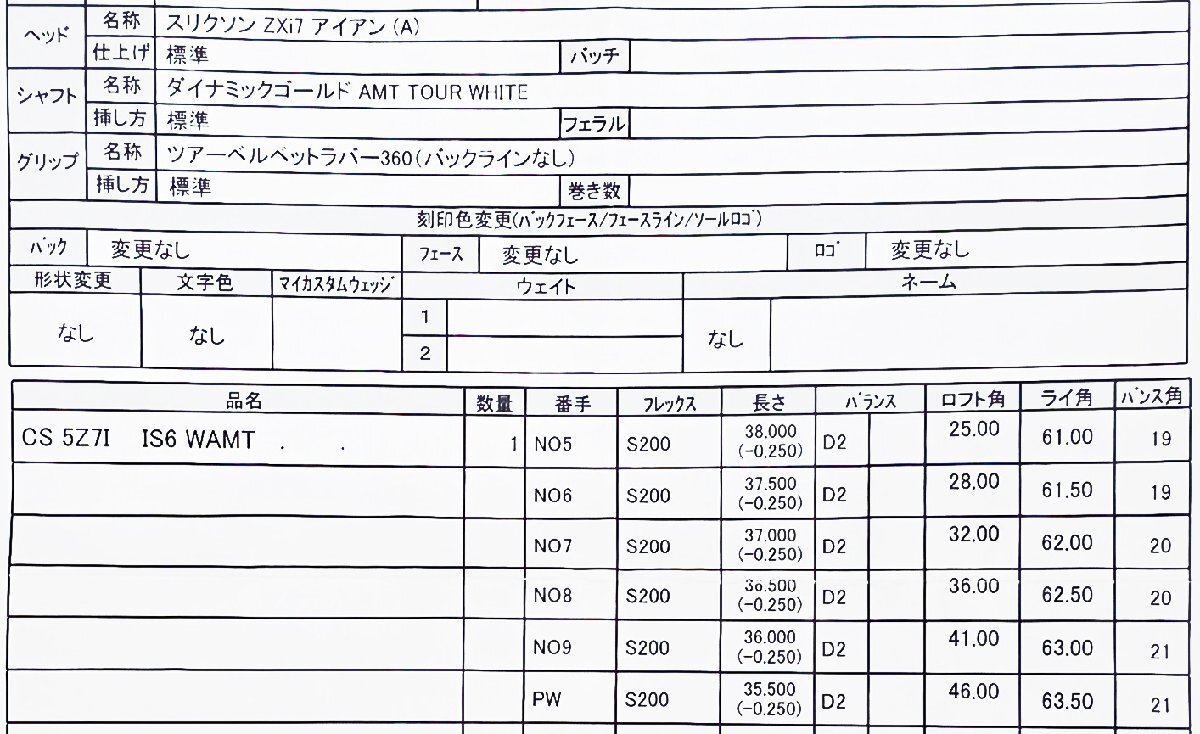 ヘッド 名称 スリクソン ZXi7 アイアン (A)
仕上げ 標準 バッチ
シャフト 名称 ダイナミックゴールド AMT TOUR WHITE
挿し方 標準 フェラル
グリップ 名称 ツアーベルベットラバー360(バックラインなし)
挿し方 標準 巻き数
刻印色変更(ﾊﾞｯｸﾌｪｰｽ/ﾌｪｰｽﾗｲﾝ/ｿｰﾙﾛｺﾞ)
ﾊﾞｯｸ 変更なし ﾌｪｰｽ 変更なし ﾛｺﾞ 変更なし
形状変更 文字色 ﾏｲｶｽﾀﾑｳｪｯｼﾞ ウェイト ネーム
なし なし 1 なし
2
品名 数量 番手 ﾌﾚｯｸｽ 長さ ﾊﾞﾗﾝｽ ロフト角 ライ角 ﾊﾞﾝｽ角
CS 5Z7I IS6 WAMT . . 1 NO5 S200 38.000 (-0.250) D2 25.00 61.00 19
NO6 S200 37.500 (-0.250) D2 28.00 61.50 19
NO7 S200 37.000 (-0.250) D2 32.00 62.00 20
NO8 S200 36.500 (-0.250) D2 36.00 62.50 20
NO9 S200 36.000 (-0.250) D2 41.00 63.00 21
PW S200 35.500 (-0.250) D2 46.00 63.50 21